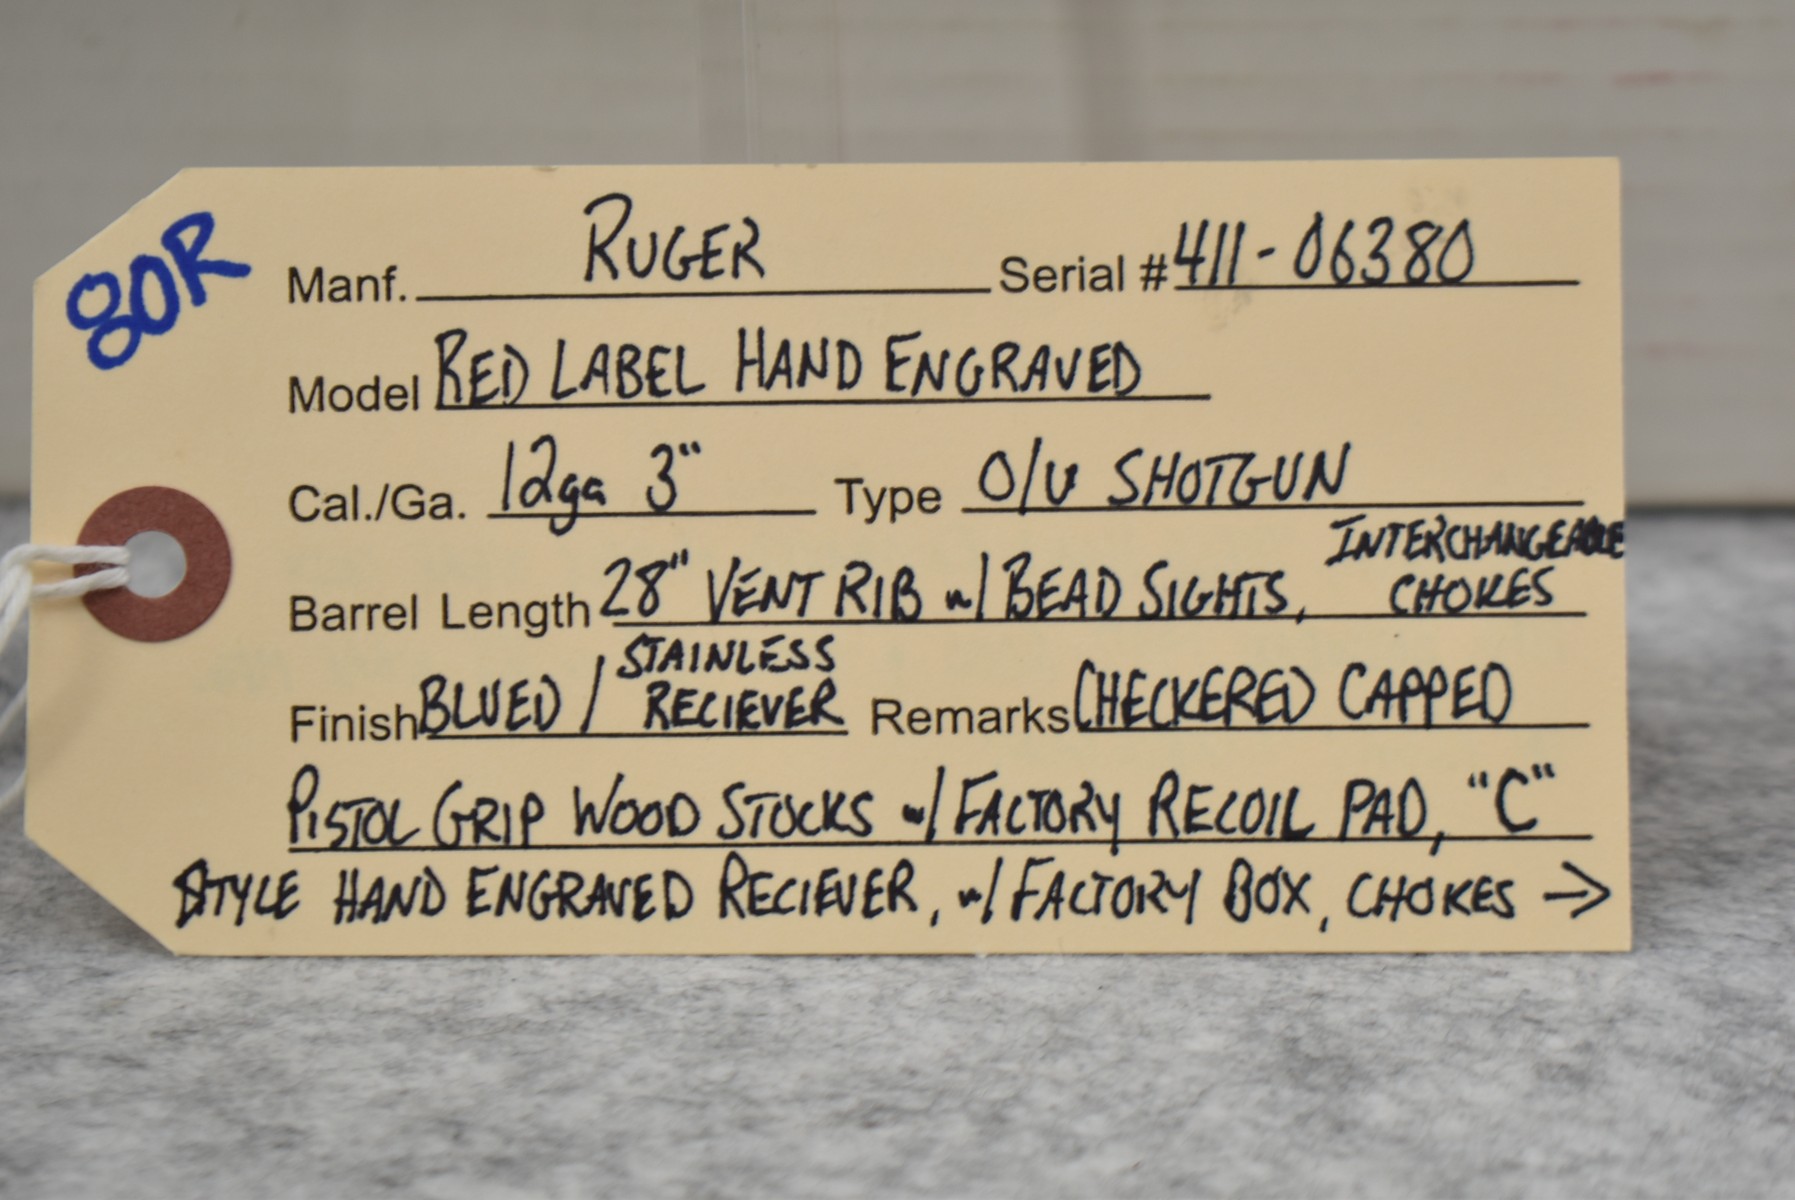 80R
Manf. RUGER Serial # 411-06380
Model RED LABEL HAND ENGRAVED
Cal./Ga. 12ga 3" Type O/U SHOTGUN
Barrel Length 28" VENT RIB w/ BEAD SIGHTS, INTERCHANGEABLE CHOKES
Finish BLUED / STAINLESS RECIEVER Remarks CHECKERED CAPPED
PISTOL GRIP WOOD STOCKS w/ FACTORY RECOIL PAD, "C"
STYLE HAND ENGRAVED RECIEVER, w/ FACTORY BOX, CHOKES →